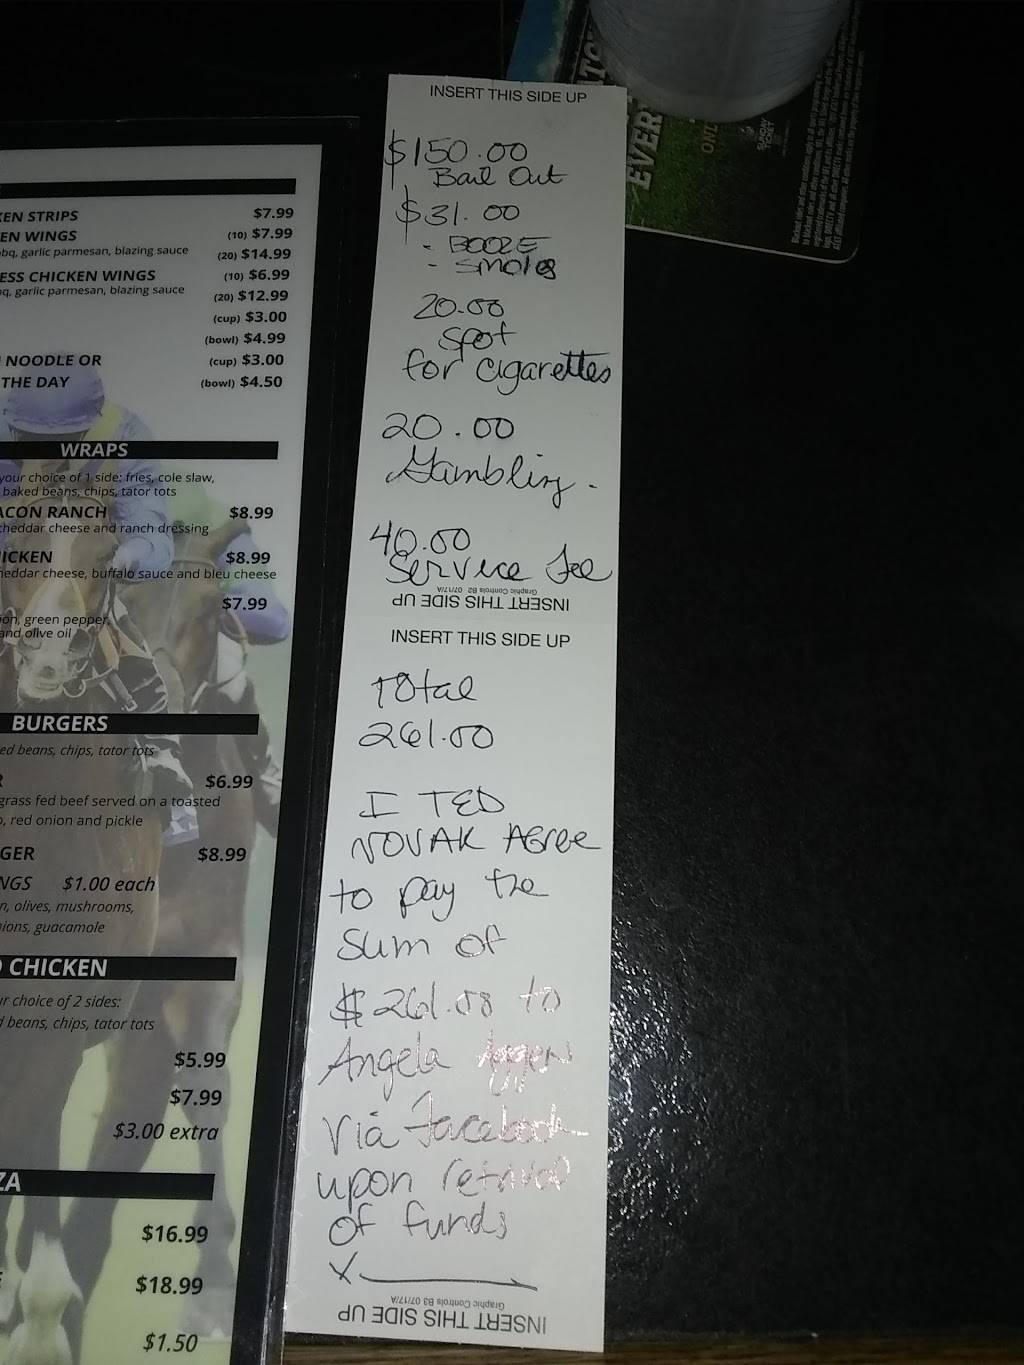 KEN STRIPS $7.99
EN WINGS (10) $7.99
bbq, garlic parmesan, blazing sauce (20) $14.99
ESS CHICKEN WINGS (10) $6.99
garlic parmesan, blazing sauce (20) $12.99
(cup) $3.00
(bowl) $4.99
NOODLE OR (cup) $3.00
THE DAY (bowl) $4.50
WRAPS
your choice of 1 side: fries, cole slaw,
baked beans, chips, tator tots
ACON RANCH $8.99
cheddar cheese and ranch dressing
ICKEN $8.99
heddar cheese, buffalo sauce and bleu cheese
$7.99
on, green pepper,
and olive oil
BURGERS
ed beans, chips, tator tots
R $6.99
grass fed beef served on a toasted
o, red onion and pickle
GER $8.99
NGS $1.00 each
n, olives, mushrooms,
ions, guacamole
CHICKEN
r choice of 2 sides:
beans, chips, tator tots
$5.99
$7.99
$3.00 extra
ZA
$16.99
$18.99
$1.50
INSERT THIS SIDE UP
$150.00
Bail Out
$31.00
- BOOZE
- Smokes
20.00
Spot
for cigarettes
20.00
Gambling.
40.00
Service Fee
Graphic Controls B2 07/17/A
INSERT THIS SIDE UP
INSERT THIS SIDE UP
Total
261.00
I TED
NOVAK AGree
to pay the
sum of
$261.00 to
Angela
Via Facebook
upon retrival
of funds
X
Graphic Controls B3 07/17/A
INSERT THIS SIDE UP
EVERY
ONL
SUNDAY
TICKET